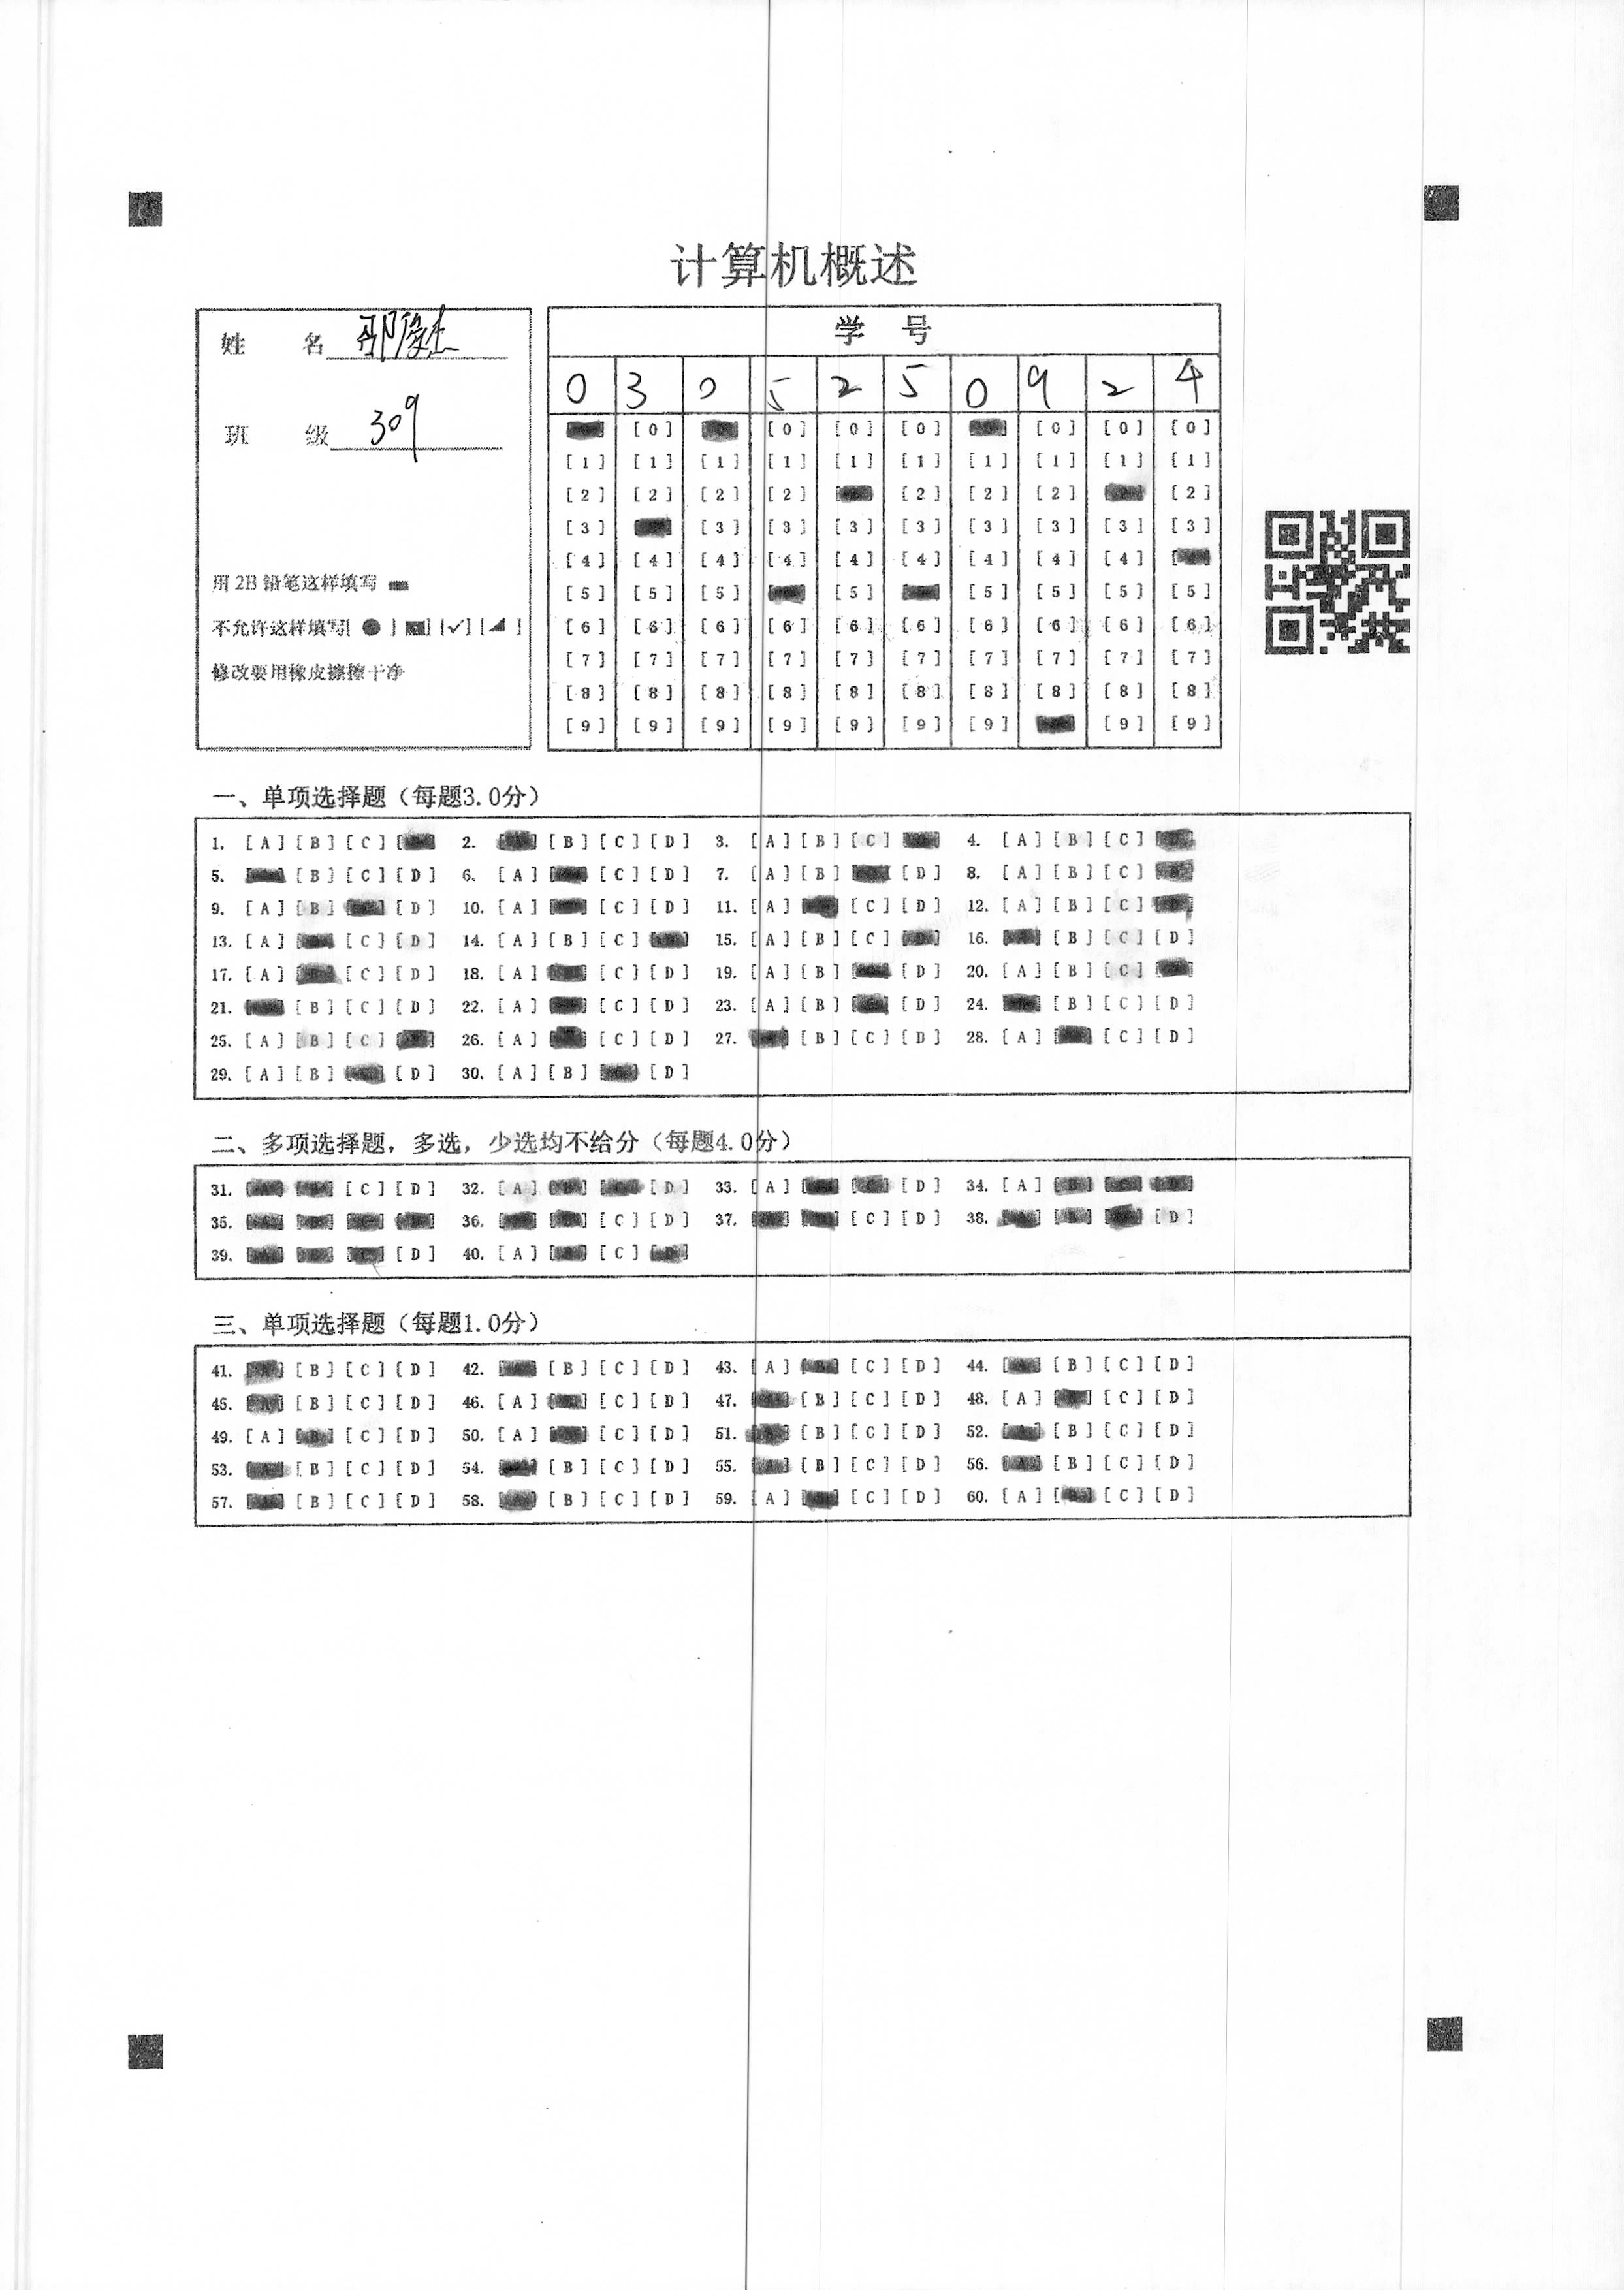 计算机概述
姓 名
班 级 309
用 2B 铅笔这样填写
不允许这样填写[ ● ] [ ] [√] [ ]
修改要用橡皮擦擦干净
学 号
0 3 0 5 2 5 0 9 2 4
[0] [0] [0] [0] [0] [0] [0]
[1] [1] [1] [1] [1] [1] [1] [1] [1] [1]
[2] [2] [2] [2] [2] [2] [2] [2]
[3] [3] [3] [3] [3] [3] [3] [3] [3]
[4] [4] [4] [4] [4] [4] [4] [4] [4]
[5] [5] [5] [5] [5] [5] [5] [5]
[6] [6] [6] [6] [6] [6] [6] [6] [6] [6]
[7] [7] [7] [7] [7] [7] [7] [7] [7] [7]
[8] [8] [8] [8] [8] [8] [8] [8] [8] [8]
[9] [9] [9] [9] [9] [9] [9] [9] [9]
一、单项选择题（每题3.0分）
1. [A] [B] [C] 2. [B] [C] [D] 3. [A] [B] [C] 4. [A] [B] [C]
5. [B] [C] [D] 6. [A] [C] [D] 7. [A] [B] [D] 8. [A] [B] [C]
9. [A] [B] [D] 10. [A] [C] [D] 11. [A] [C] [D] 12. [A] [B] [C]
13. [A] [C] [D] 14. [A] [B] [C] 15. [A] [B] [C] 16. [B] [C] [D]
17. [A] [C] [D] 18. [A] [C] [D] 19. [A] [B] [D] 20. [A] [B] [C]
21. [B] [C] [D] 22. [A] [C] [D] 23. [A] [B] [D] 24. [B] [C] [D]
25. [A] [B] [C] 26. [A] [C] [D] 27. [B] [C] [D] 28. [A] [C] [D]
29. [A] [B] [D] 30. [A] [B] [D]
二、多项选择题，多选，少选均不给分（每题4.0分）
31. [C] [D] 32. [A] [D] 33. [A] [D] 34. [A]
35. 36. [C] [D] 37. [C] [D] 38. [D]
39. [D] 40. [A] [C]
三、单项选择题（每题1.0分）
41. [B] [C] [D] 42. [B] [C] [D] 43. [A] [C] [D] 44. [B] [C] [D]
45. [B] [C] [D] 46. [A] [C] [D] 47. [B] [C] [D] 48. [A] [C] [D]
49. [A] [C] [D] 50. [A] [C] [D] 51. [B] [C] [D] 52. [B] [C] [D]
53. [B] [C] [D] 54. [B] [C] [D] 55. [B] [C] [D] 56. [B] [C] [D]
57. [B] [C] [D] 58. [B] [C] [D] 59. [A] [C] [D] 60. [A] [C] [D]